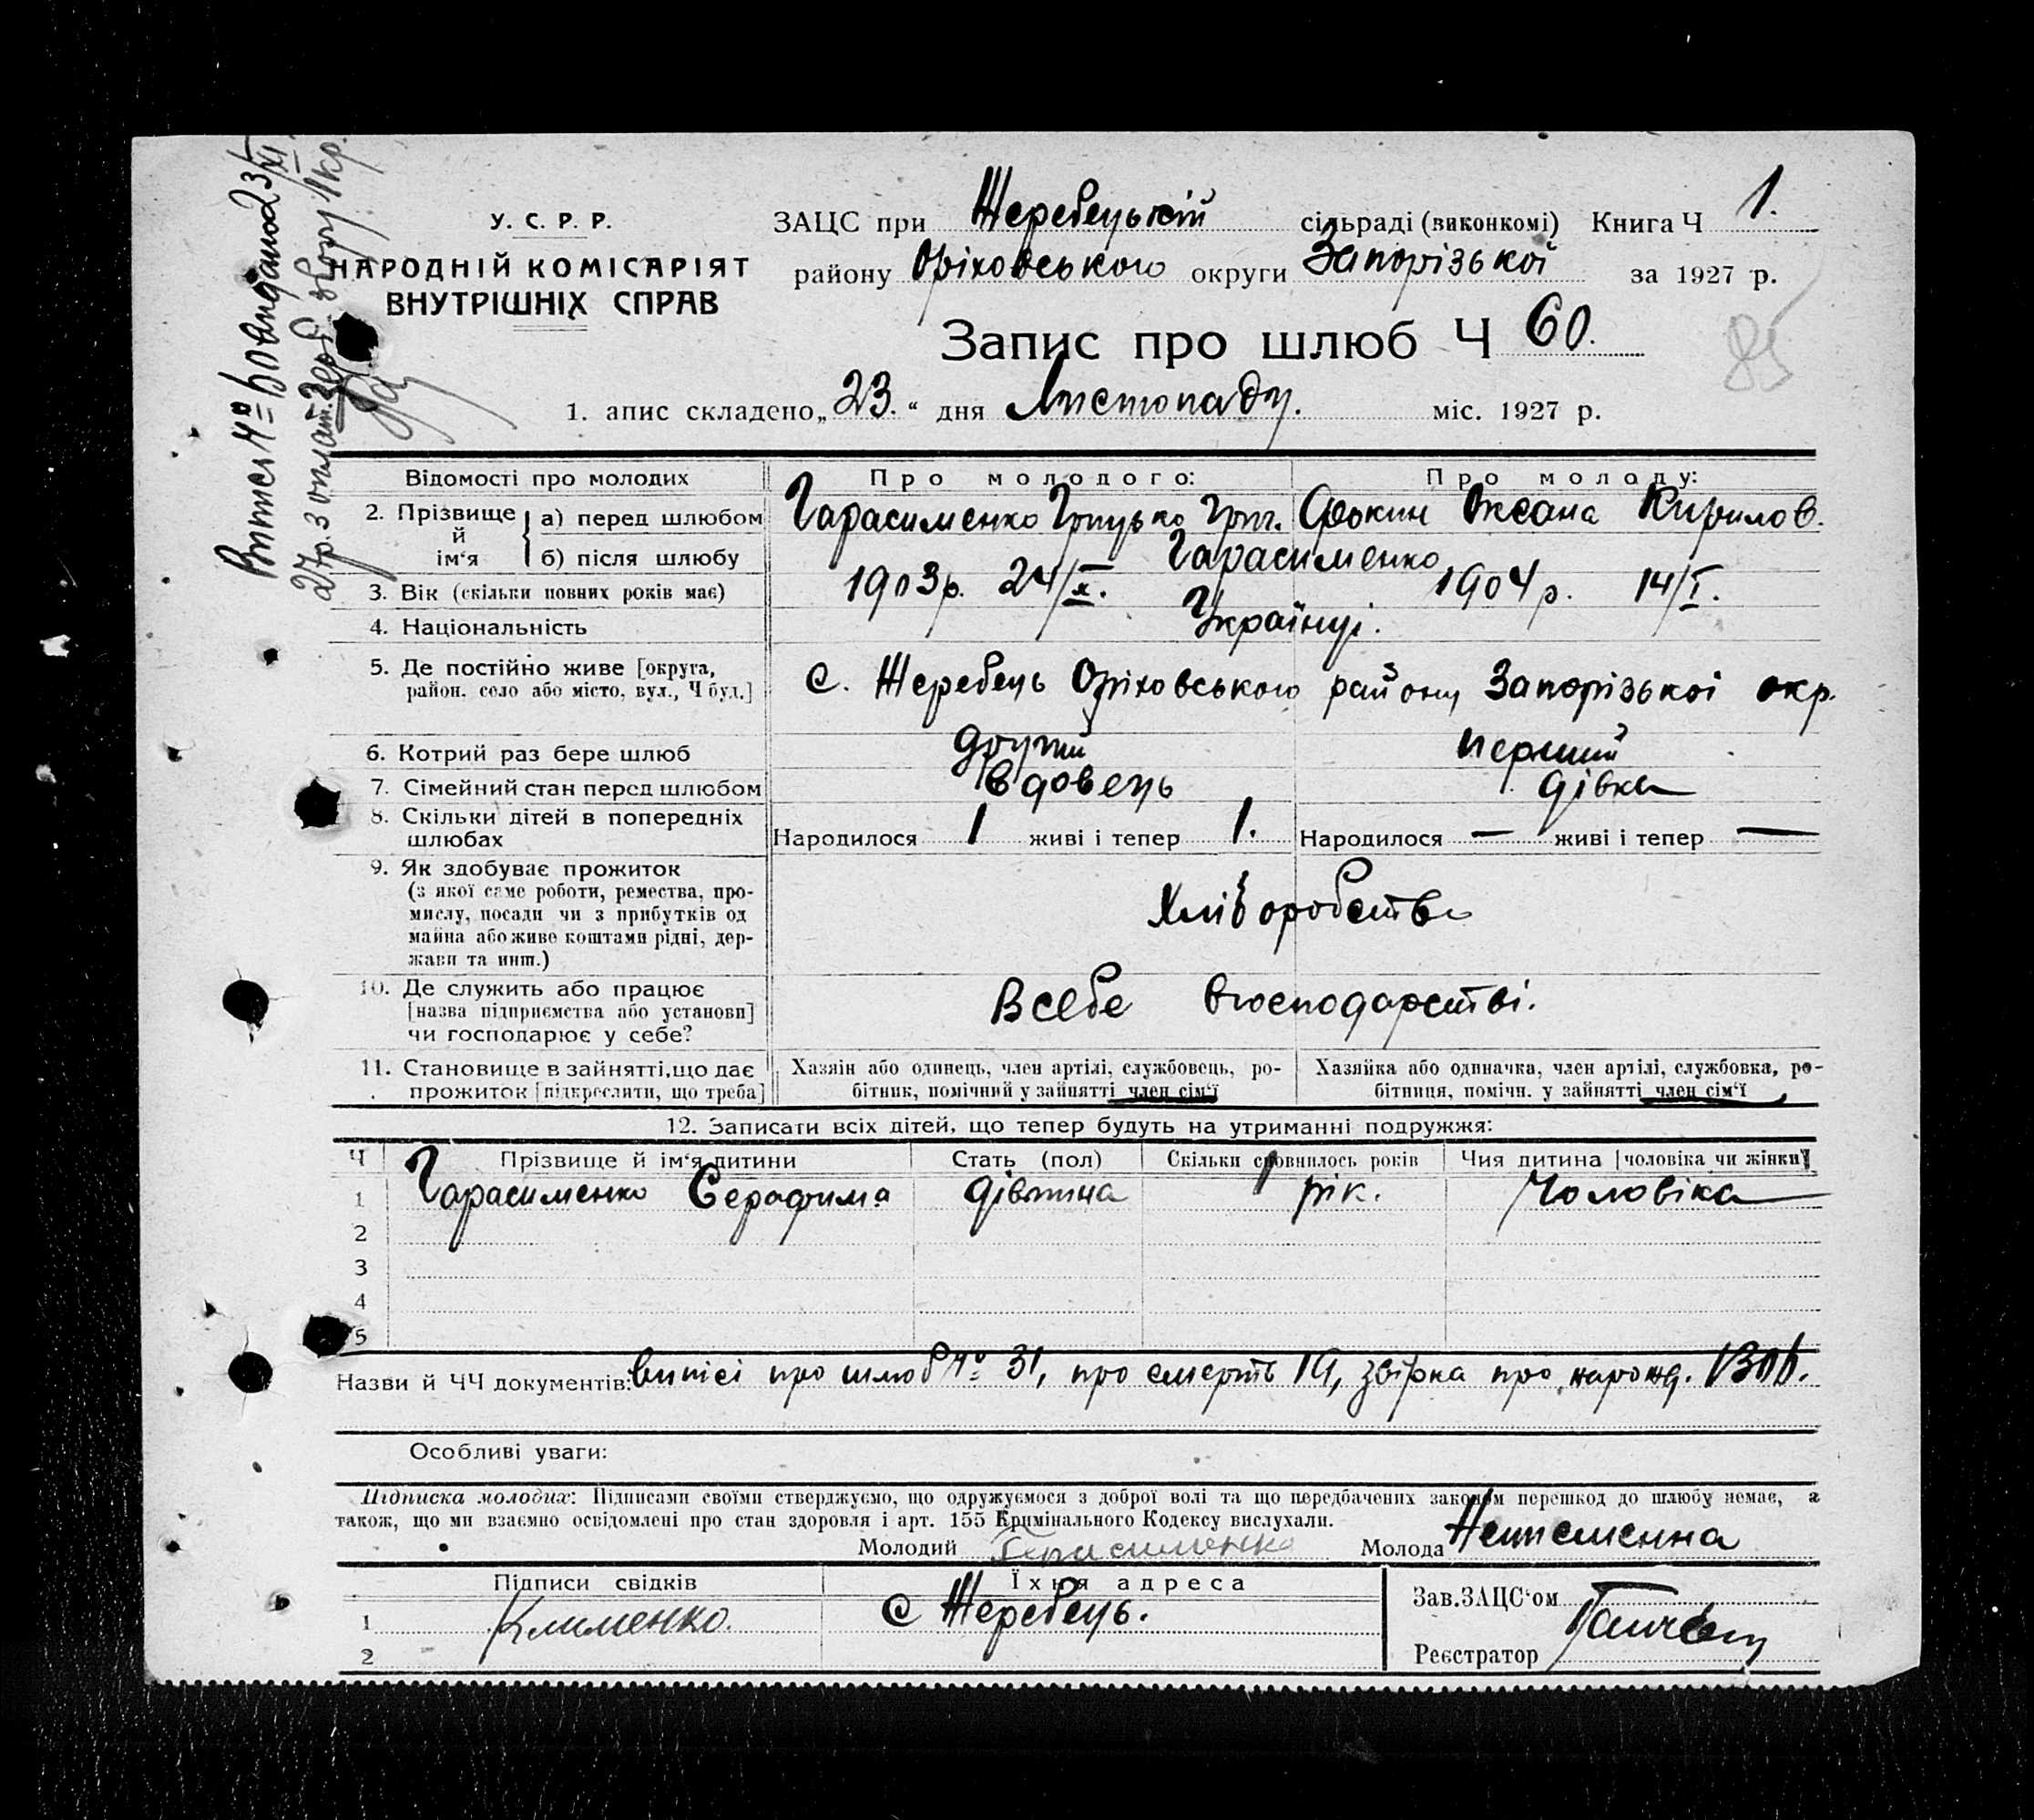 У. С. Р. Р.
НАРОДНІЙ КОМІСАРІЯТ
ВНУТРІШНІХ СПРАВ
ЗАЦС при Жеребецькій сільраді (виконкомі) Книга Ч 1.
району Оріховського округи Запорізької за 1927 р.
Запис про шлюб Ч 60.
85
1. апис складено „23.“ дня Листопаду. міс. 1927 р.
Випись № 60 видано 23/XI
27 р. з оплат. герб. збору 1 кр.
Відомості про молодих Про молодого: Про молоду:
2. Прізвище й ім‘я а) перед шлюбом Гарасименко Грицько Григ. Оксана Кирилов.
б) після шлюбу Гарасименко
3. Вік (скільки повних років має) 1903 р. 24/X. 1904 р. 14/I.
4. Національність Українці.
5. Де постійно живе [округа, район, село або місто, вул., Ч буд.] с. Жеребець Оріховського району Запорізької окр.
6. Котрий раз бере шлюб другий перший
7. Сімейний стан перед шлюбом вдовець дівка
8. Скільки дітей в попередніх шлюбах Народилося 1 живі і тепер 1. Народилося — живі і тепер —
9. Як здобуває прожиток
(з якої саме роботи, ремества, про-
мислу, посади чи з прибутків од
майна або живе коштами рідні, дер-
жави та инш.)
Хліборобство
10. Де служить або працює
[назва підприємства або установи]
чи господарює у себе?
В себе в господарстві.
11. Становище в зайнятті, що дає
прожиток [підкреслити, що треба]
Хазяїн або одинець, член артілі, службовець, ро-
бітник, помічний у зайнятті член сім‘ї
Хазяйка або одиначка, член артілі, службовка, ро-
бітниця, помічн. у зайнятті член сім‘ї
12. Записати всіх дітей, що тепер будуть на утриманні подружжя:
Ч Прізвище й ім‘я дитини Стать (пол) Скільки сповнилось років Чия дитина [чоловіка чи жінки]
1 Гарасименко Серафима дівчина 1 рік. Чоловіка
2
3
4
5
Назви й ЧЧ документів: виписі про шлюб № 31, про смерть 19, звірка про народж. 1306.
Особливі уваги:
Підписка молодих: Підписами своїми стверджуємо, що одружуємося з доброї волі та що передбачених законом перешкод до шлюбу немає, а
також, що ми взаємно освідомлені про стан здоровля і арт. 155 Кримінального Кодексу вислухали.
Молодий Герасименко Молода Неписменна
Підписи свідків Їхня адреса Зав. ЗАЦС‘ом
1 Клименко. с Жеребець.
2 Реєстратор